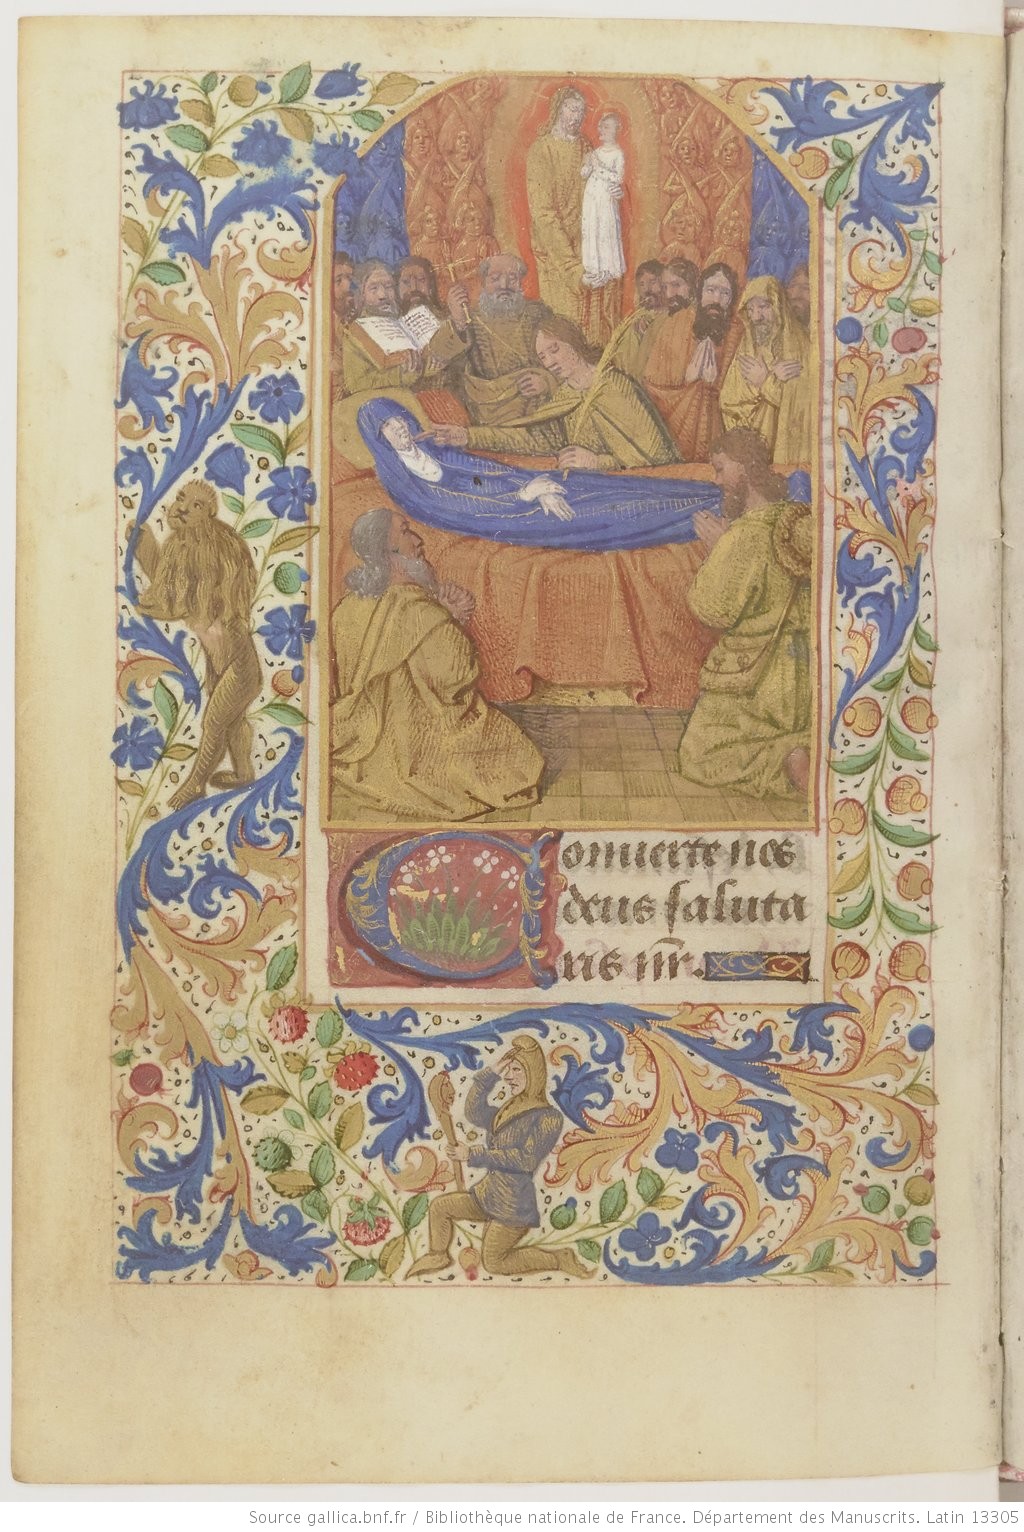 Conuerte nos
deus saluta
ris nr̄.
Source gallica.bnf.fr / Bibliothèque nationale de France. Département des Manuscrits. Latin 13305